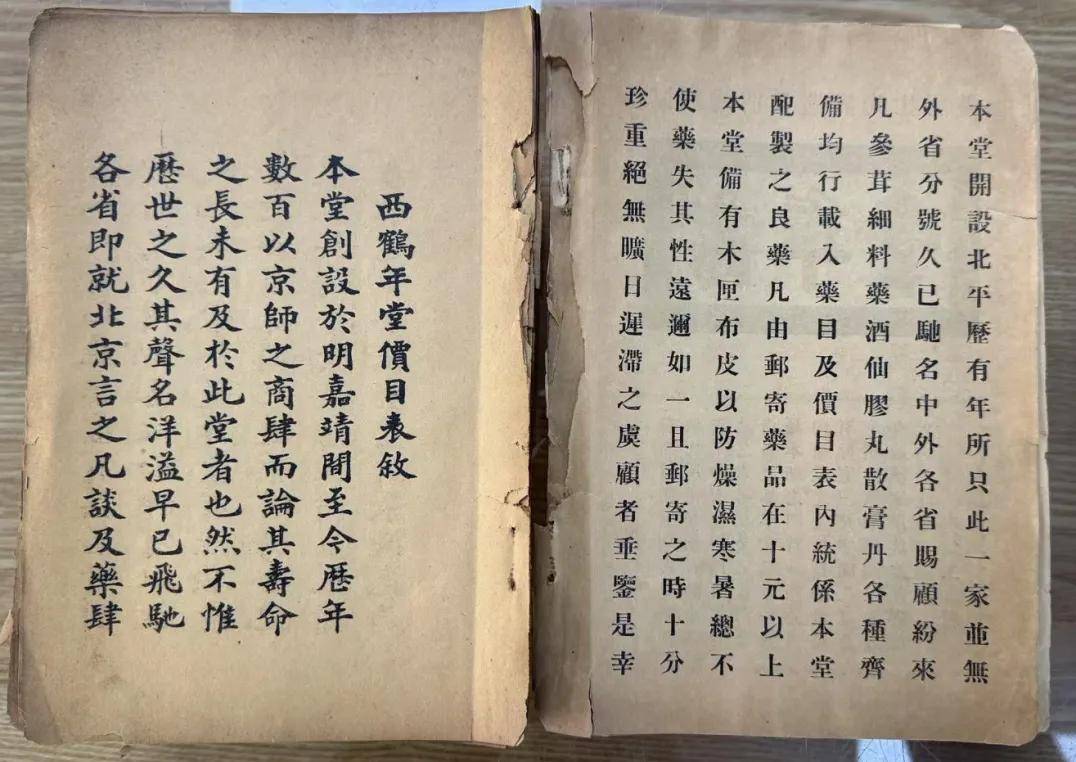 本堂開設北平歷有年所只此一家並無
外省分號久已馳名中外各省賜顧紛來
凡參茸細料藥酒仙膠丸散膏丹各種齊
備均行載入藥目及價目表內統係本堂
配製之良藥凡由郵寄藥品在十元以上
本堂備有木匣布皮以防燥濕寒暑總不
使藥失其性遠邇如一且郵寄之時十分
珍重絕無曠日遲滯之虞顧者垂鑒是幸
西鶴年堂價目表敘
本堂創設於明嘉靖間至今歷年
數百以京師之商肆而論其壽命
之長未有及於此堂者也然不惟
歷世之久其聲名洋溢早已飛馳
各省即就北京言之凡談及藥肆